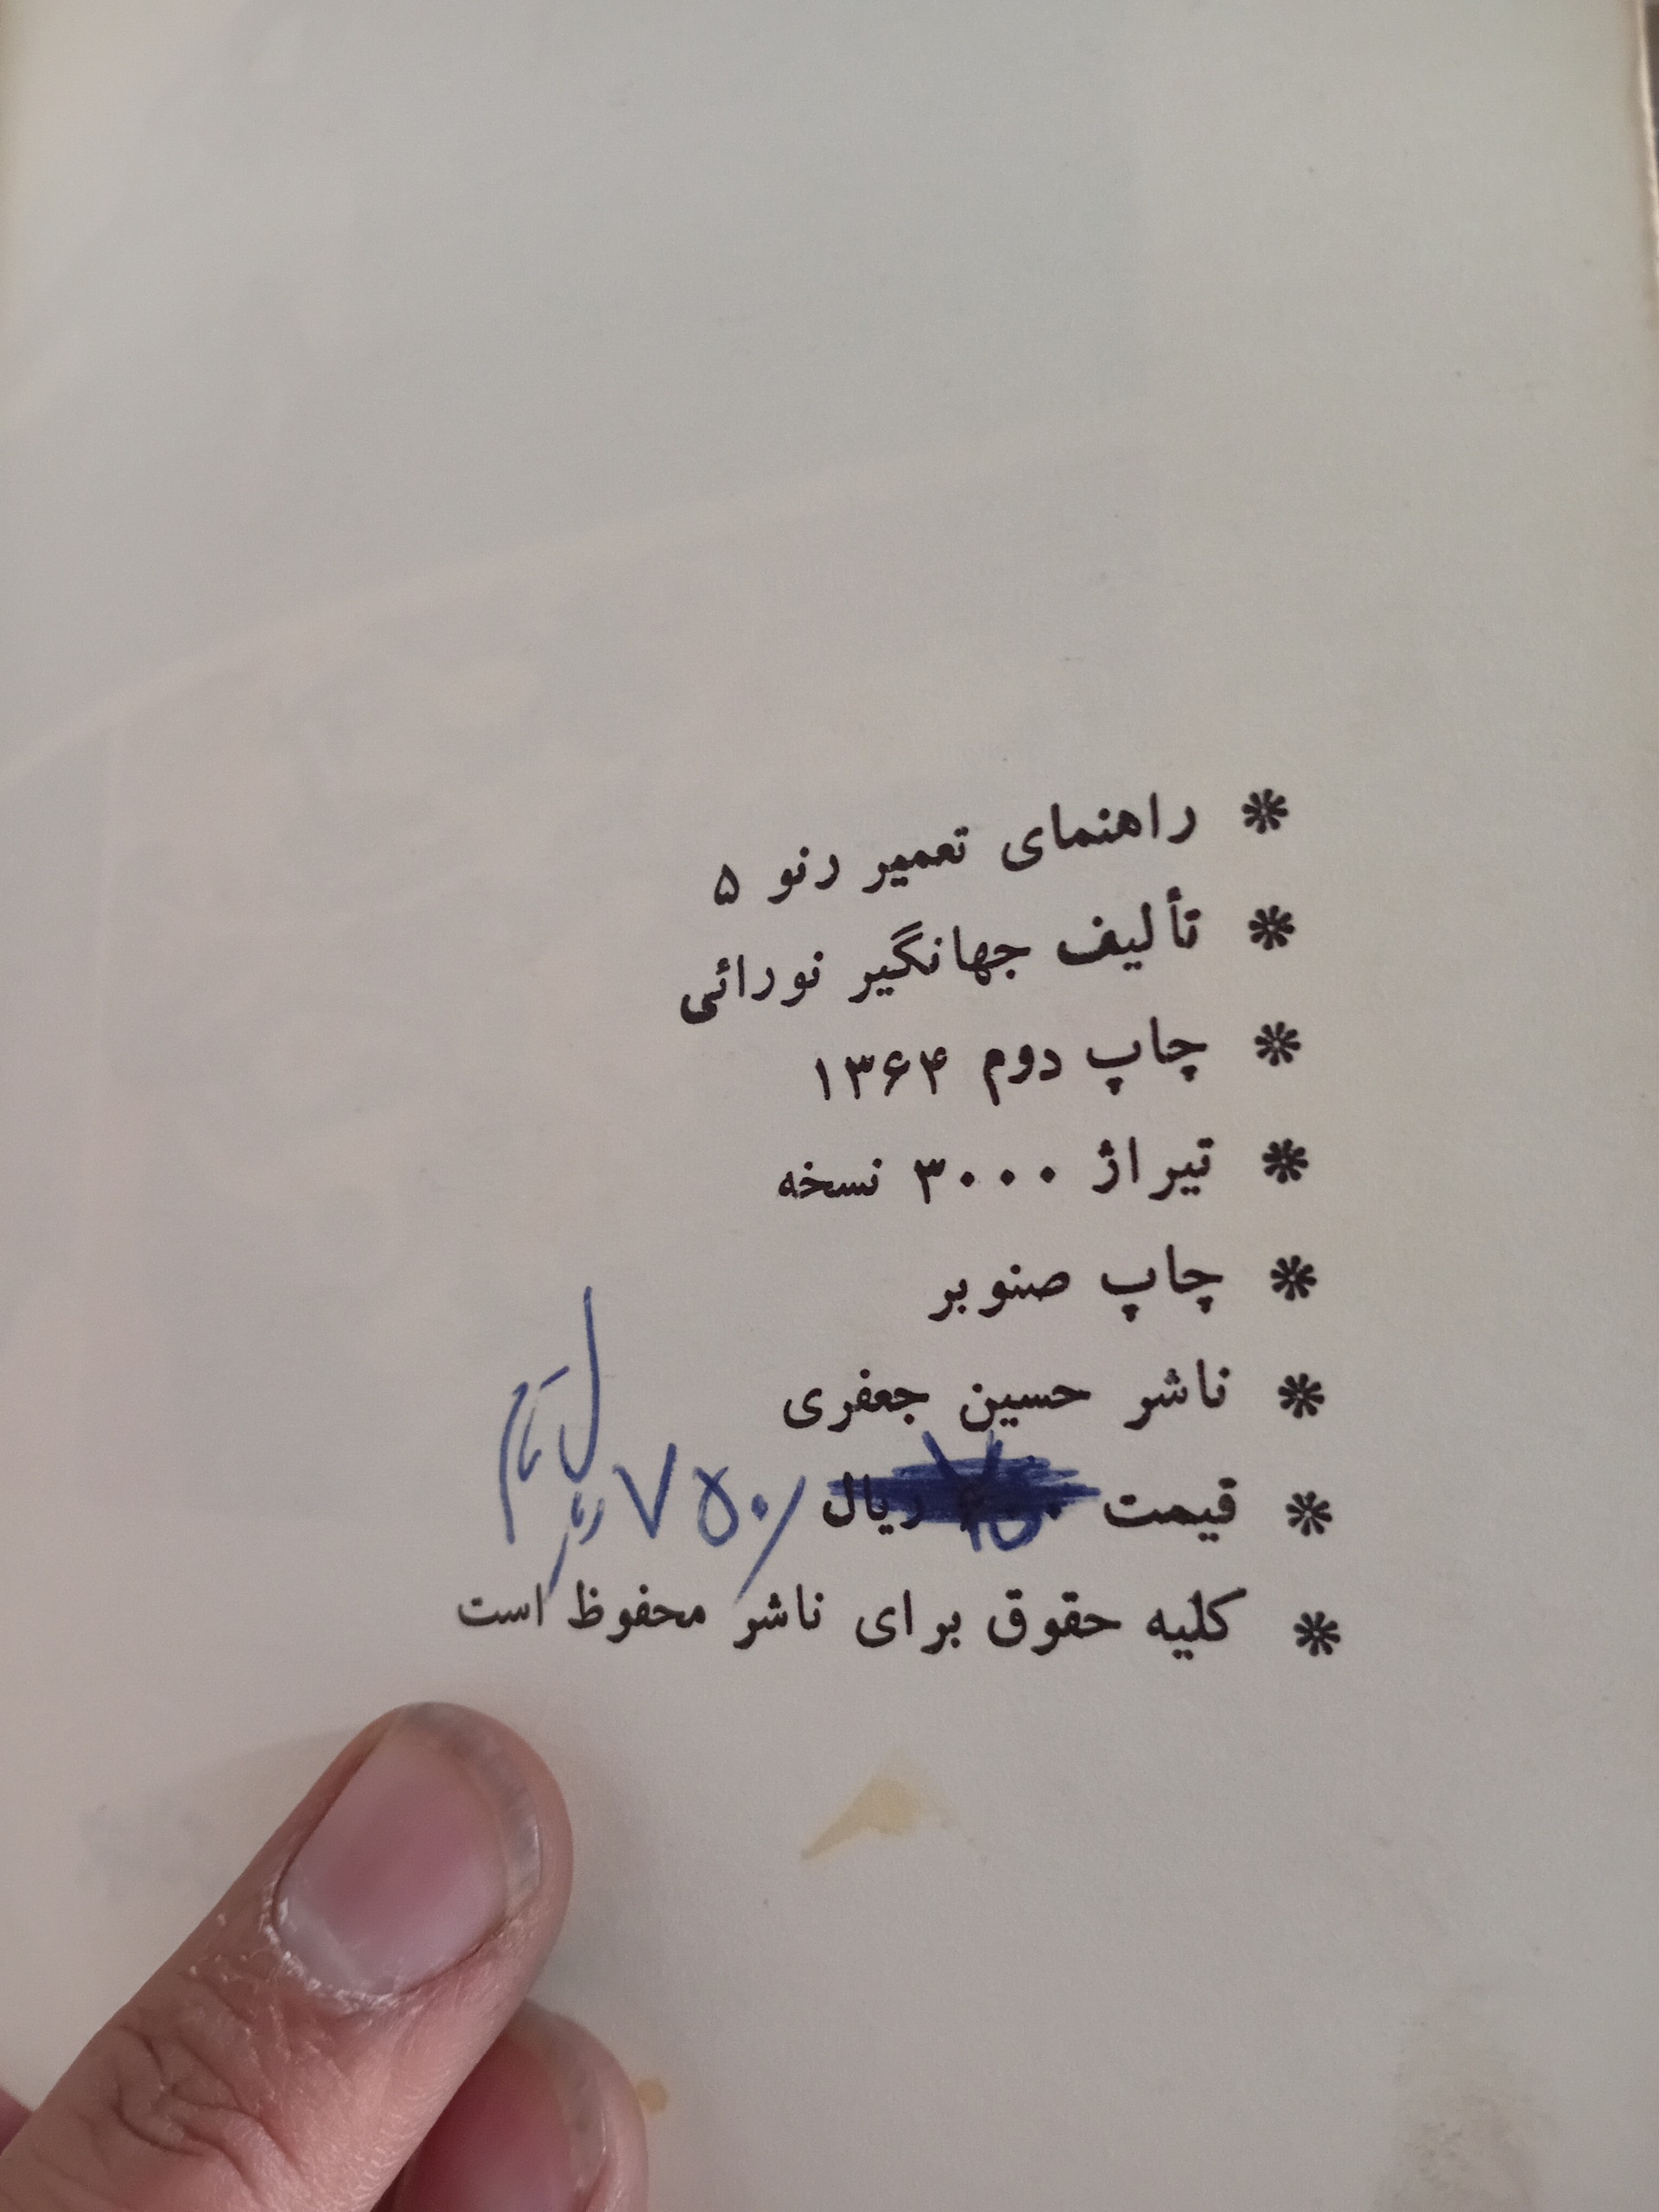 * راهنمای تعمیر رنو ۵
* تألیف جهانگیر نورائی
* چاپ دوم ۱۳۶۴
* تیراژ ۳۰۰۰ نسخه
* چاپ صنوبر
* ناشر حسین جعفری
* قیمت ریال ۷۵۰/
* کلیه حقوق برای ناشر محفوظ است